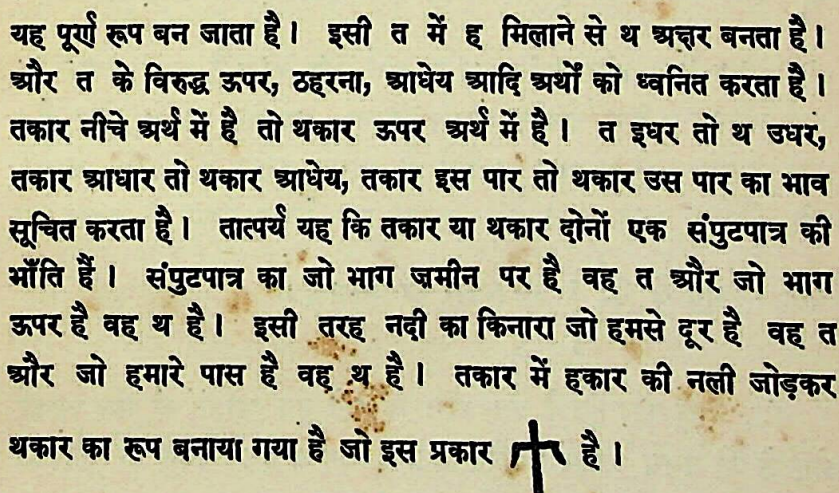 यह पूर्ण रूप बन जाता है। इसी त में ह मिलाने से थ अक्षर बनता है।
और त के विरुद्ध ऊपर, ठहरना, आधेय आदि अर्थों को ध्वनित करता है।
तकार नीचे अर्थ में है तो थकार ऊपर अर्थ में है। त इधर तो थ उधर,
तकार आधार तो थकार आधेय, तकार इस पार तो थकार उस पार का भाव
सूचित करता है। तात्पर्य यह कि तकार या थकार दोनों एक संपुटपात्र की
भाँति हैं। संपुटपात्र का जो भाग ज़मीन पर है वह त और जो भाग
ऊपर है वह थ है। इसी तरह नदी का किनारा जो हमसे दूर है वह त
और जो हमारे पास है वह थ है। तकार में हकार की नली जोड़कर
थकार का रूप बनाया गया है जो इस प्रकार है।